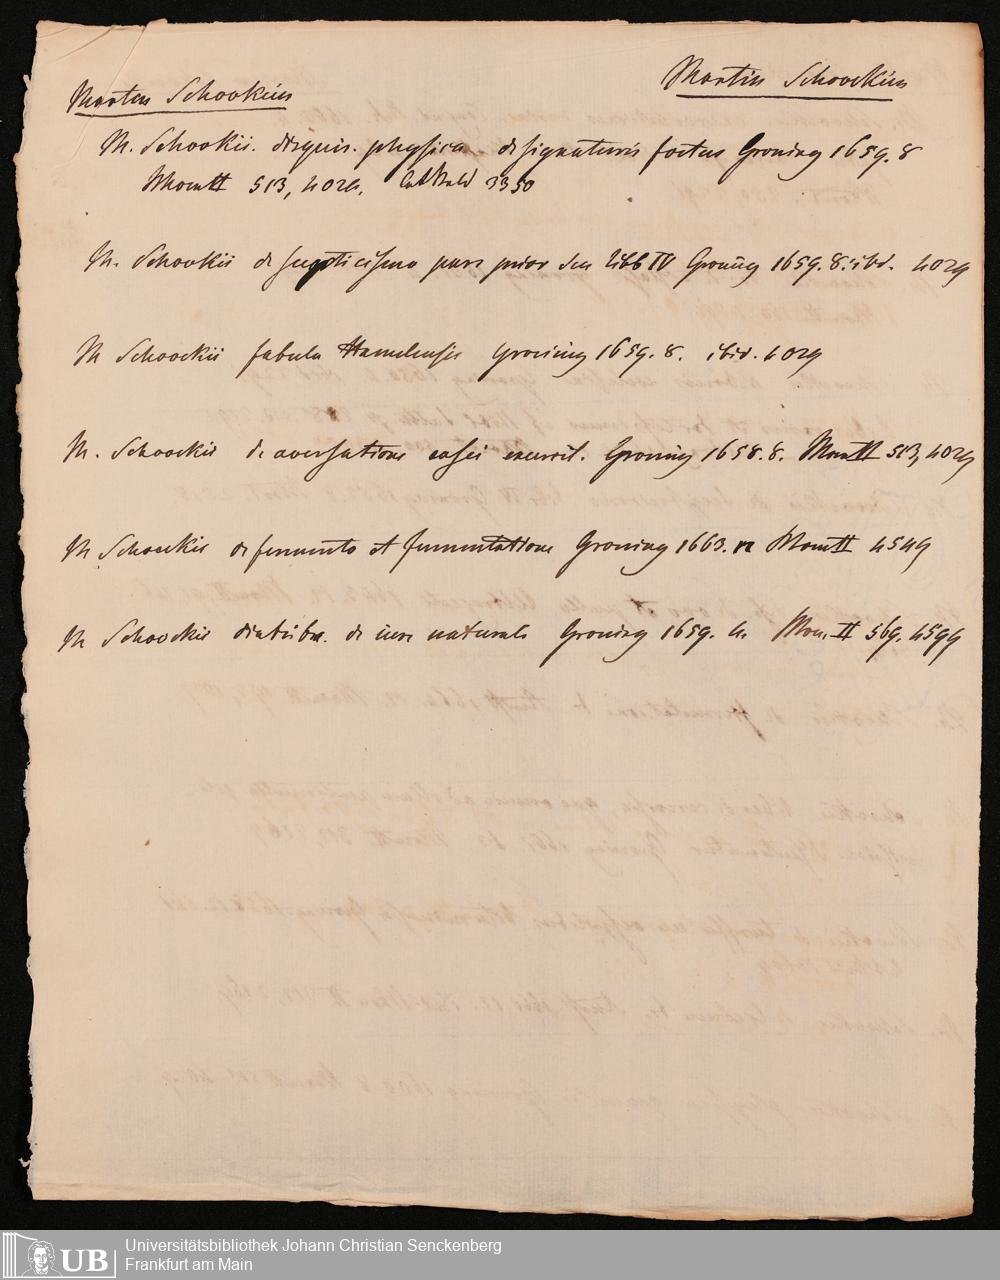 Martin Schoockius
Marten Schookius
M. Schookii. disquis. physica de signaturis foetus Groning 1659. 8
Mon II 513, 4029. Cat Bald 3350
M. Schookii de scepticismo pars prior seu libb IV Groning 1659. 8. ibid. 4029
M Schoockii fabula Hamelensis Groning 1659. 8. ibid. 4029
M. Schoockii de aversatione casei exercit. Groning 1658. 8. Mon II 513, 4029
M Schoockii de fermento et fermentatione Groning 1663. 12 Mon II 4549
M Schoockii diatriba. de iure naturali Groning 1659. 4. Mon. II 569. 4599
UB
Universitätsbibliothek Johann Christian Senckenberg
Frankfurt am Main